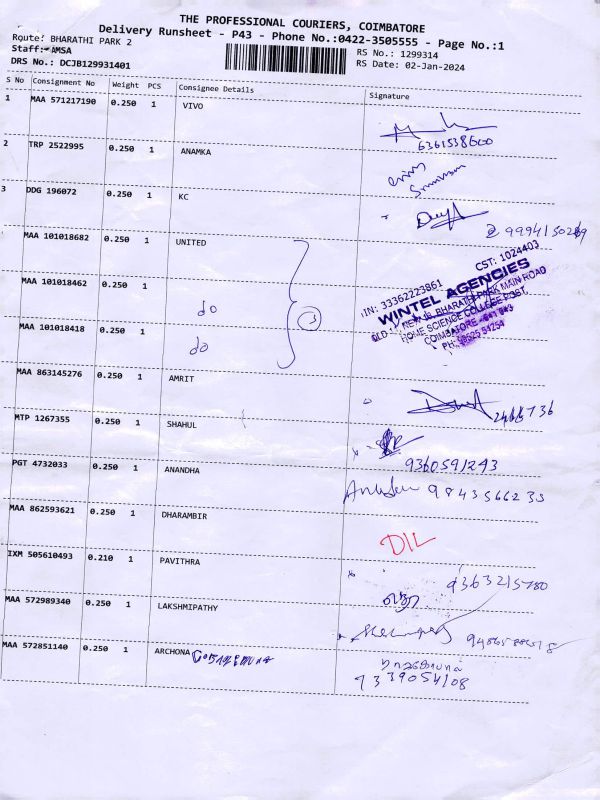 THE PROFESSIONAL COURIERS, COIMBATORE
Delivery Runsheet - P43 - Phone No.:0422-3505555 - Page No.:1
Route: BHARATHI PARK 2
Staff: AMSA
RS No.: 1299314
DRS No.: DCJB129931401
RS Date: 02-Jan-2024
S No Consignment No Weight PCS Consignee Details Signature
1 MAA 571217190 0.250 1 VIVO
6361538600
2 TRP 2522995 0.250 1 ANAMKA
3 DDG 196072 0.250 1 KC
9994150289
MAA 101018682 0.250 1 UNITED
MAA 101018462 0.250 1 do
3
MAA 101018418 0.250 1 do
IN: 33362223861 CST: 1024403
WINTEL AGENCIES
BHARATHI PARK MAIN ROAD
HOME SCIENCE COLLEGE POST,
COIMBATORE - 641 043
MAA 863145276 0.250 1 AMRIT
MTP 1267355 0.250 1 SHAHUL
9360591243
PGT 4732033 0.250 1 ANANDHA
9843566233
MAA 862593621 0.250 1 DHARAMBIR
DIL
IXM 505610493 0.210 1 PAVITHRA
9363215780
MAA 572989340 0.250 1 LAKSHMIPATHY
MAA 572851140 0.250 1 ARCHONA
7339054108